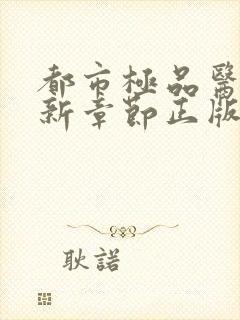 都市極品醫
新章節正版
耿諾